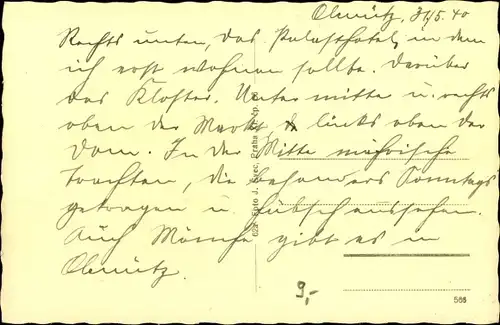 Olmütz, 31/5. 40
Rechts unten, das Palasthotel, in dem
ich erst wohnen sollte. Darüber
das Kloster. Unter mitte u. rechts
oben der Markt, links oben der
Dom. In der Mitte mährische
Trachten, die besonders Sonntags
getragen u. hübsch aussehen.
Auch Mönche gibt es in
Olmütz.
9,-
566
Foto J. Praha